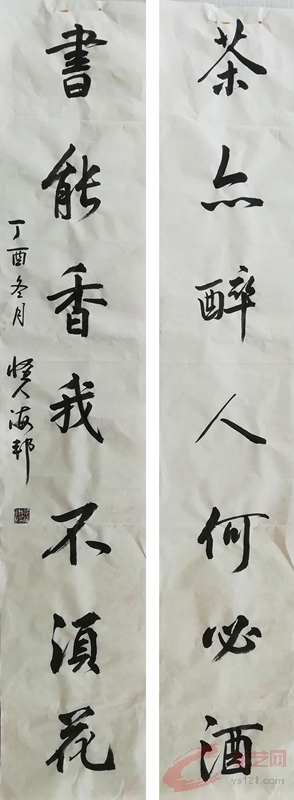 茶亦醉人何必酒
書能香我不須花
丁酉冬月
海邦
ys121.com